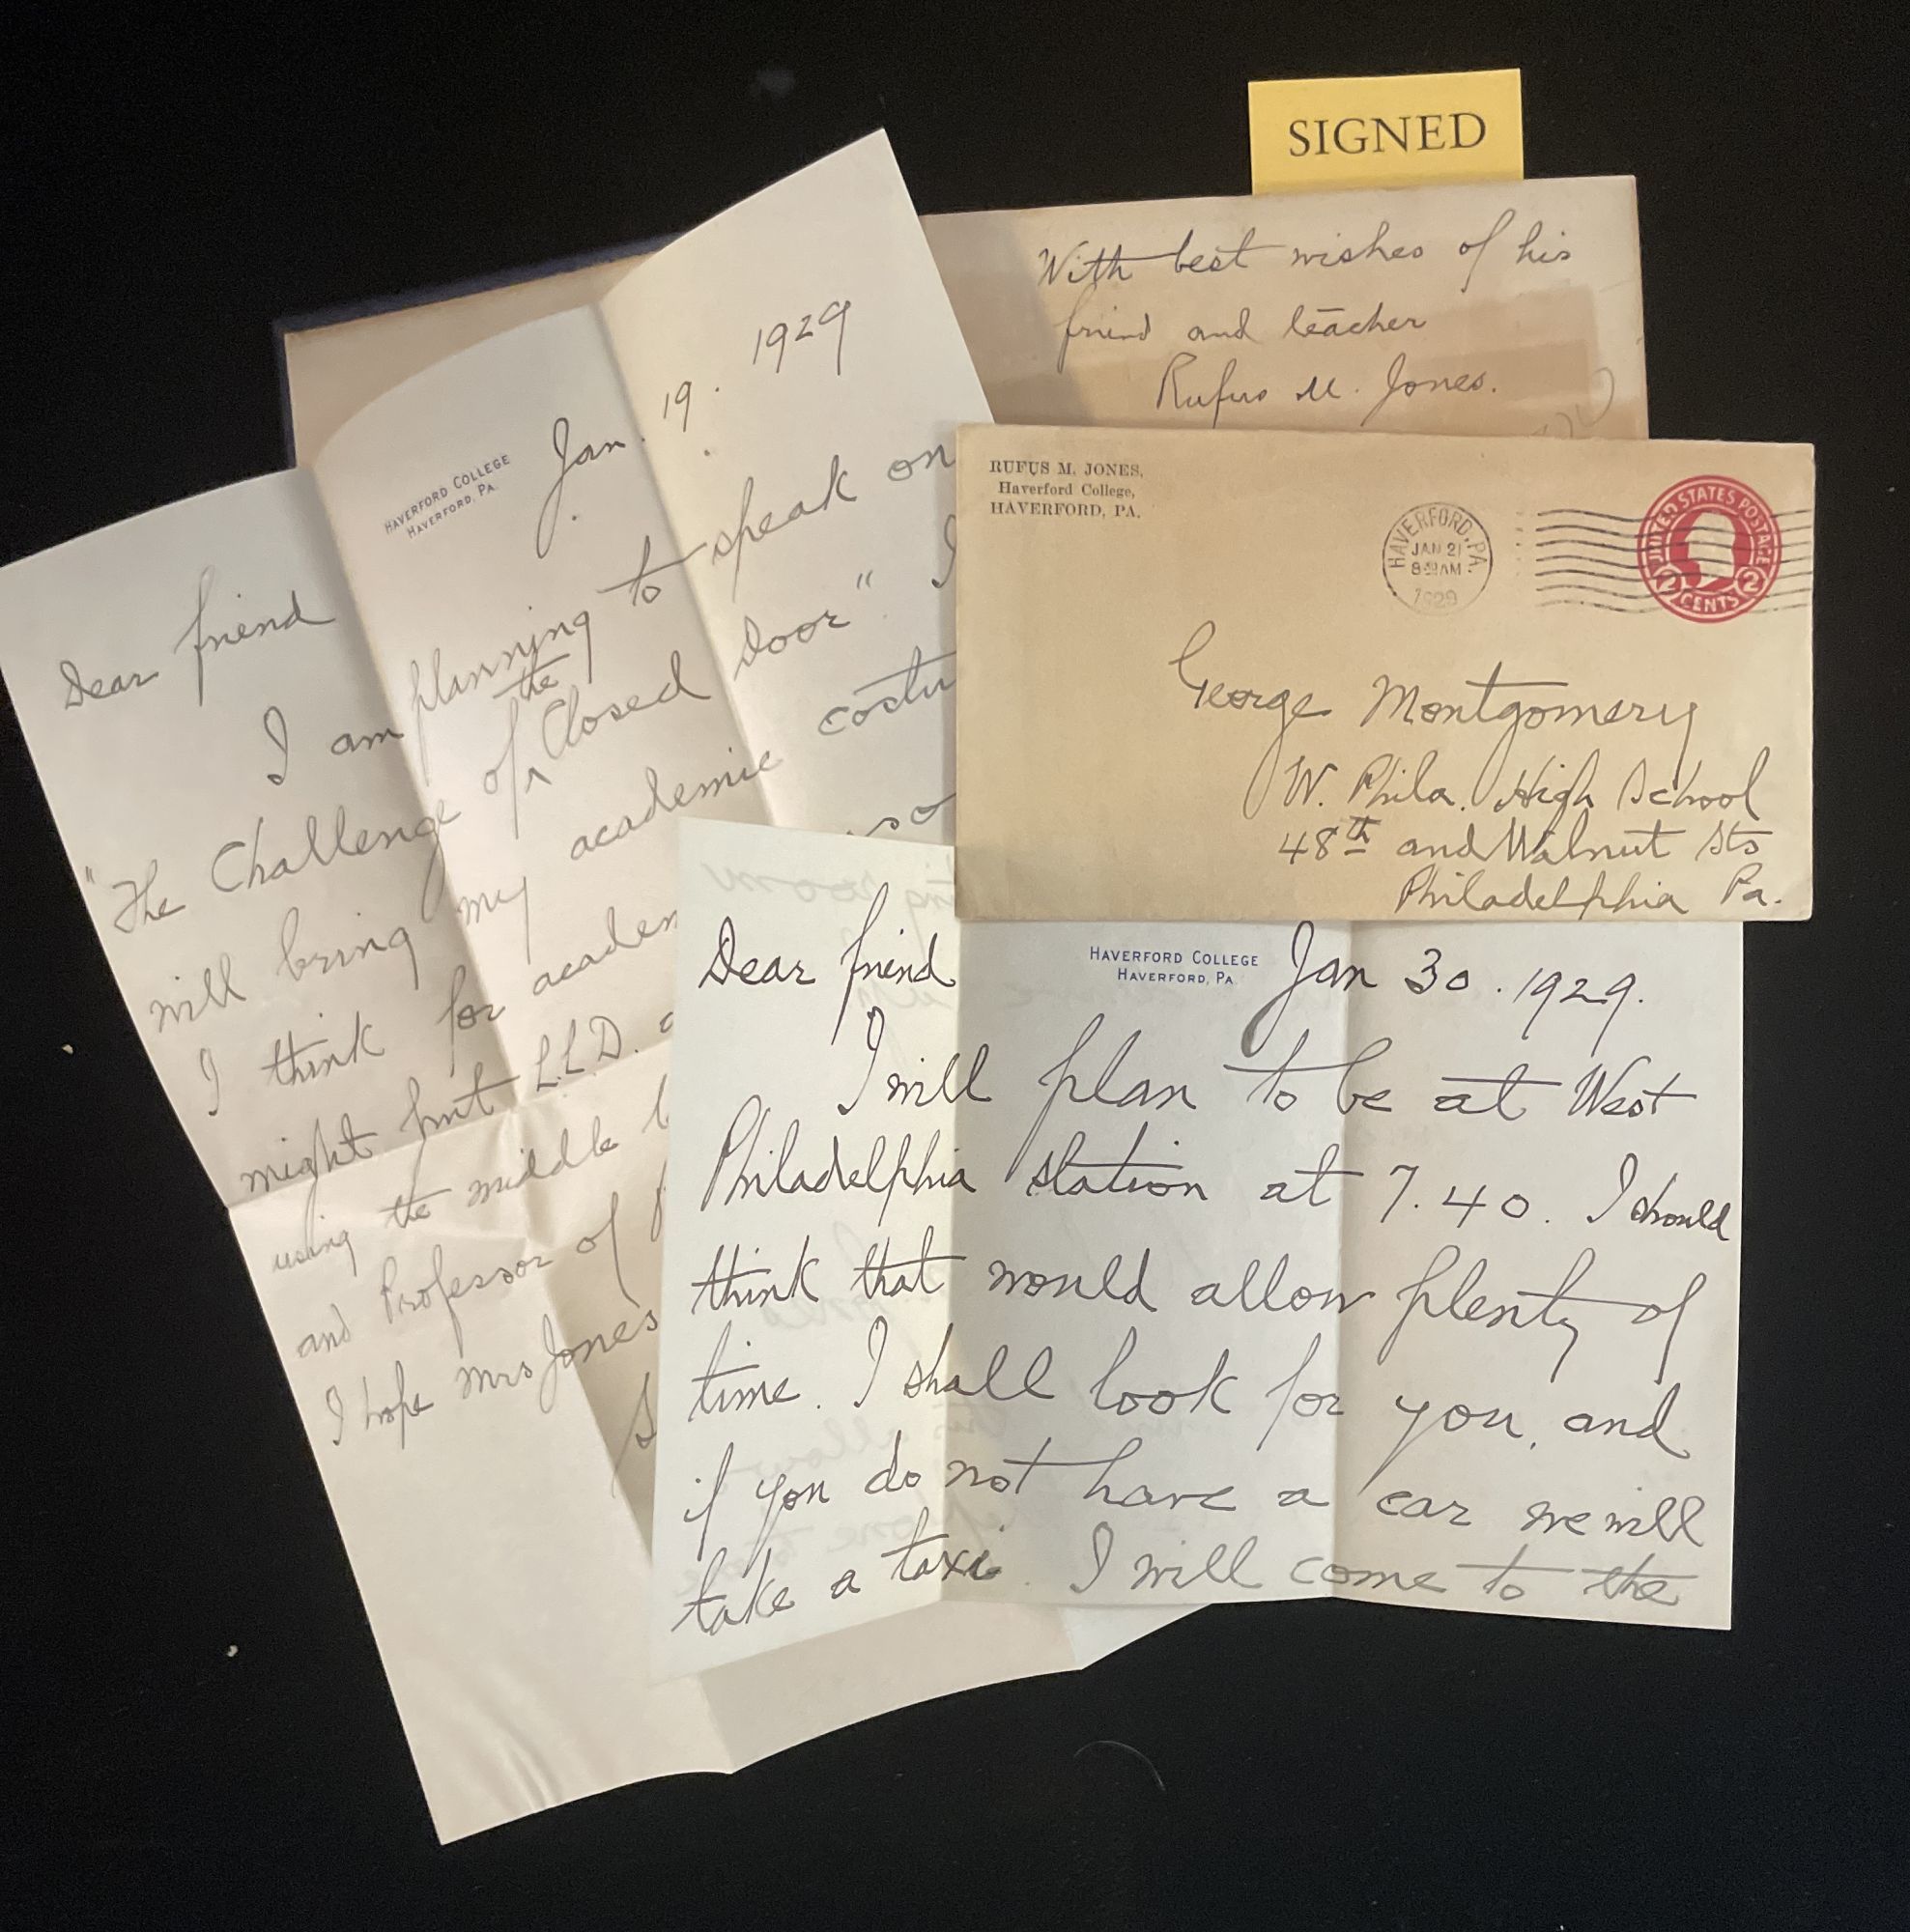 SIGNED
With best wishes of his
friend and teacher
Rufus M. Jones.
RUFUS M. JONES,
Haverford College,
HAVERFORD, PA.
HAVERFORD, PA.
JAN 21
8 AM
1929
UNITED STATES POSTAGE
2 CENTS 2
George Montgomery
W. Phila. High School
48th and Walnut Sts
Philadelphia Pa.
HAVERFORD COLLEGE
HAVERFORD, PA.
Jan. 19. 1929
Dear friend
I am planning to speak on
"The Challenge of the Closed Door". I
will bring my academic costu
I think for academ
might put L.L.D.
using the middle
and Professor of
I hope Mrs Jones
HAVERFORD COLLEGE
HAVERFORD, PA
Jan 30. 1929.
Dear friend
I will plan to be at West
Philadelphia station at 7.40. I should
think that would allow plenty of
time. I shall look for you, and
if you do not have a car we will
take a taxi. I will come to the